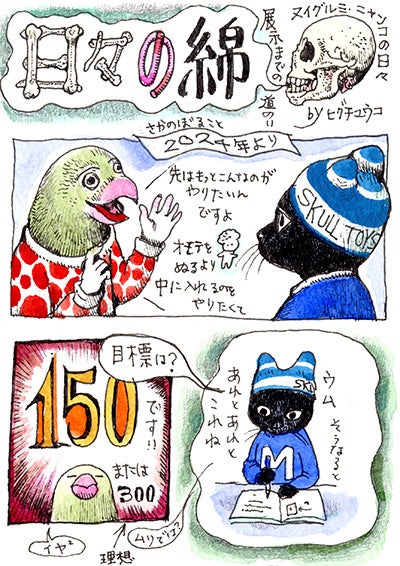 日々の綿
展示までの
道のり
ヌイグルミ・ニャンコの日々
by ヒグチユウコ
さかのぼること
2024年より
先はもっとこんなのが
やりたいん
ですよ
オモテを
ぬるより
中に入れるのを
やりたくて
SKULL TOYS
目標は?
150
です!!
または
300
イヤイヤ
理想
ウム
そうなると
あれとあれと
これね
ムリでは?
SKU
M